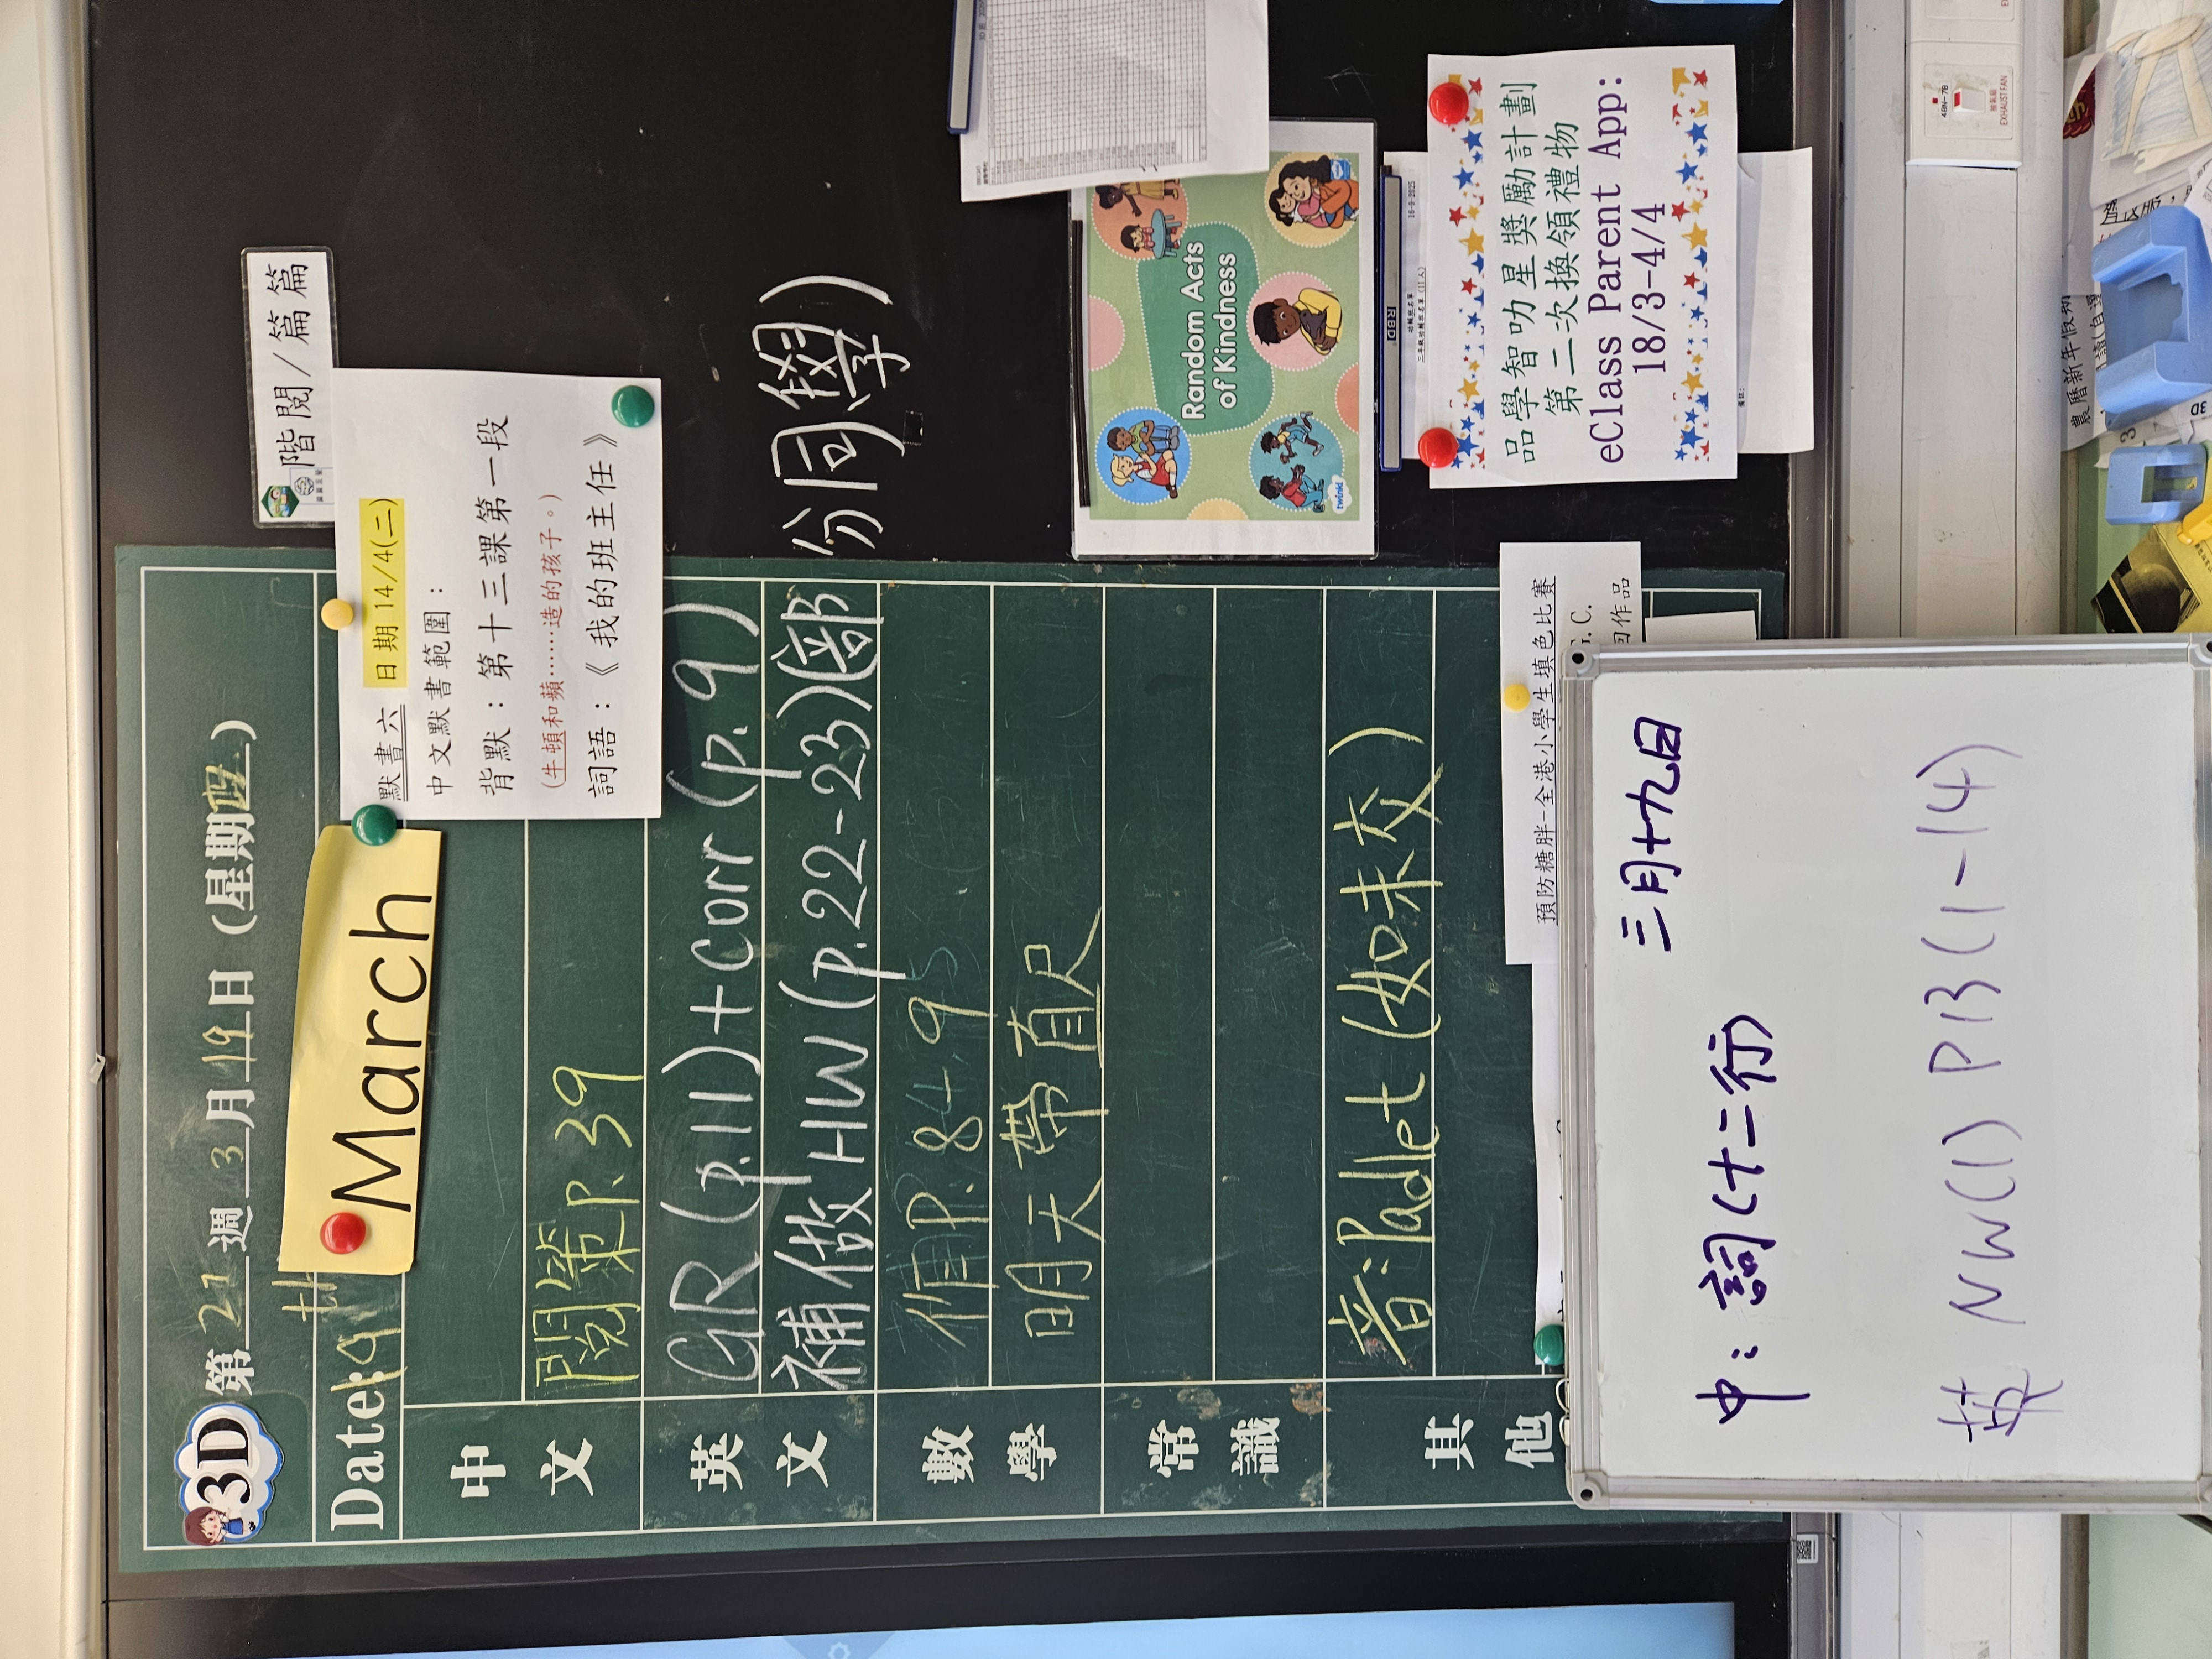 3D
第 27 週 3 月 19 日 (星期四)
Date: 19th
March
階閱/篇篇
默書六 日期14/4(二)
中文默書範圍：
背默：第十三課第一段
(牛頓和蘋……造的孩子。)
詞語：《我的班主任》
中文
閱策P.39
英文
GR (p.11) + corr (p.9)
補做HW (p.22-23)(部分同學)
數學
P.84,95
明天帶直尺
常識
其他
音:Padlet (如未交)
Random Acts
of Kindness
twinkl
RBD
16-9-2025
品學智叻星獎勵計劃
第二次換領禮物
eClass Parent App:
18/3-4/4
預防糖胖-全港小學生填色比賽
回作品
三月十九日
中：詞(十二行)
英 NW(1) P13 (1-14)
4BN-7B
抽氣扇
EXHAUST FAN
農曆新年假期